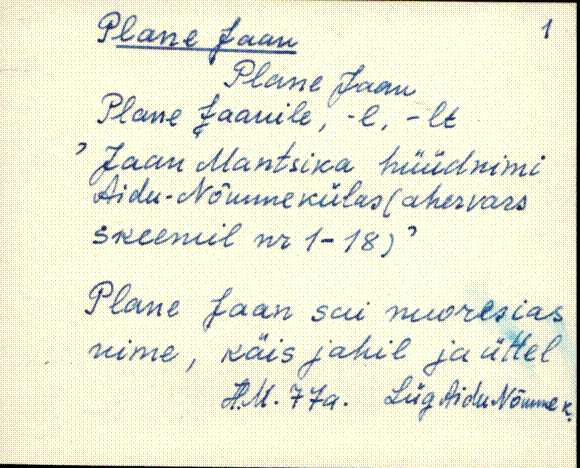 Plane Jaan 1
Plane Jaan
Plane Jaanile, -l, -lt
’Jaan Mantsika hüüdnimi
Aidu-Nõmmekülas (ahervars
skeemil nr 1-18)’
Plane Jaan sai nuoresias
nime, käis jahil ja üttel
H.M. 77a. Lüg Aidu Nõmme k.